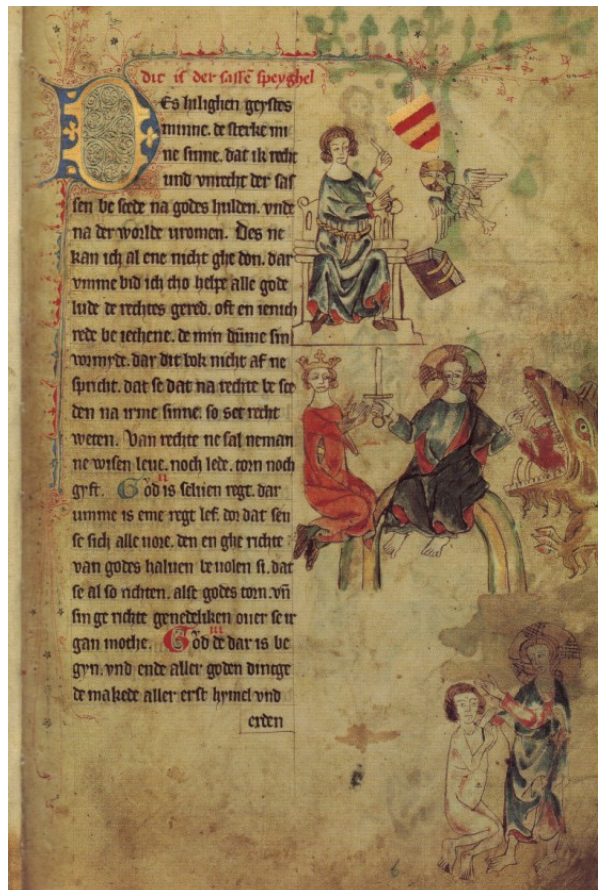 dit is der sassē speyghel
Des hilighen geystes
minne. de sterke mi
ne sinne. dat ik recht
und vnrecht der sas
sen be scede na godes hulden. vnde
na der worlde vromen. Des ne
kan ich al ene nicht ghe don. dar
vmme bid ich tho helpe alle gode
lude de rechtes gered. oft en ienich
rede be ieghene. de min dūme sin
vormyde. dar dit bok nicht af ne
spricht. dat se dat na rechte be sce
den na irme sinne. so set recht
weten. Van rechte ne sal neman
ne wisen leue. noch lede. torn noch
gyft. II God is seluen regt. dar
umme is eme regt lef. dor dat sen
se sich alle uore. den en ghe richte
van godes haluen be uolen si. dat
se al so richten. alse godes torn. vn̄
sin ge richte genedeliken ouer se ir
gan mothe. III God de dar is be
gyn. vnd ende aller goden dincge
de makede aller erst hymel vnd
erden